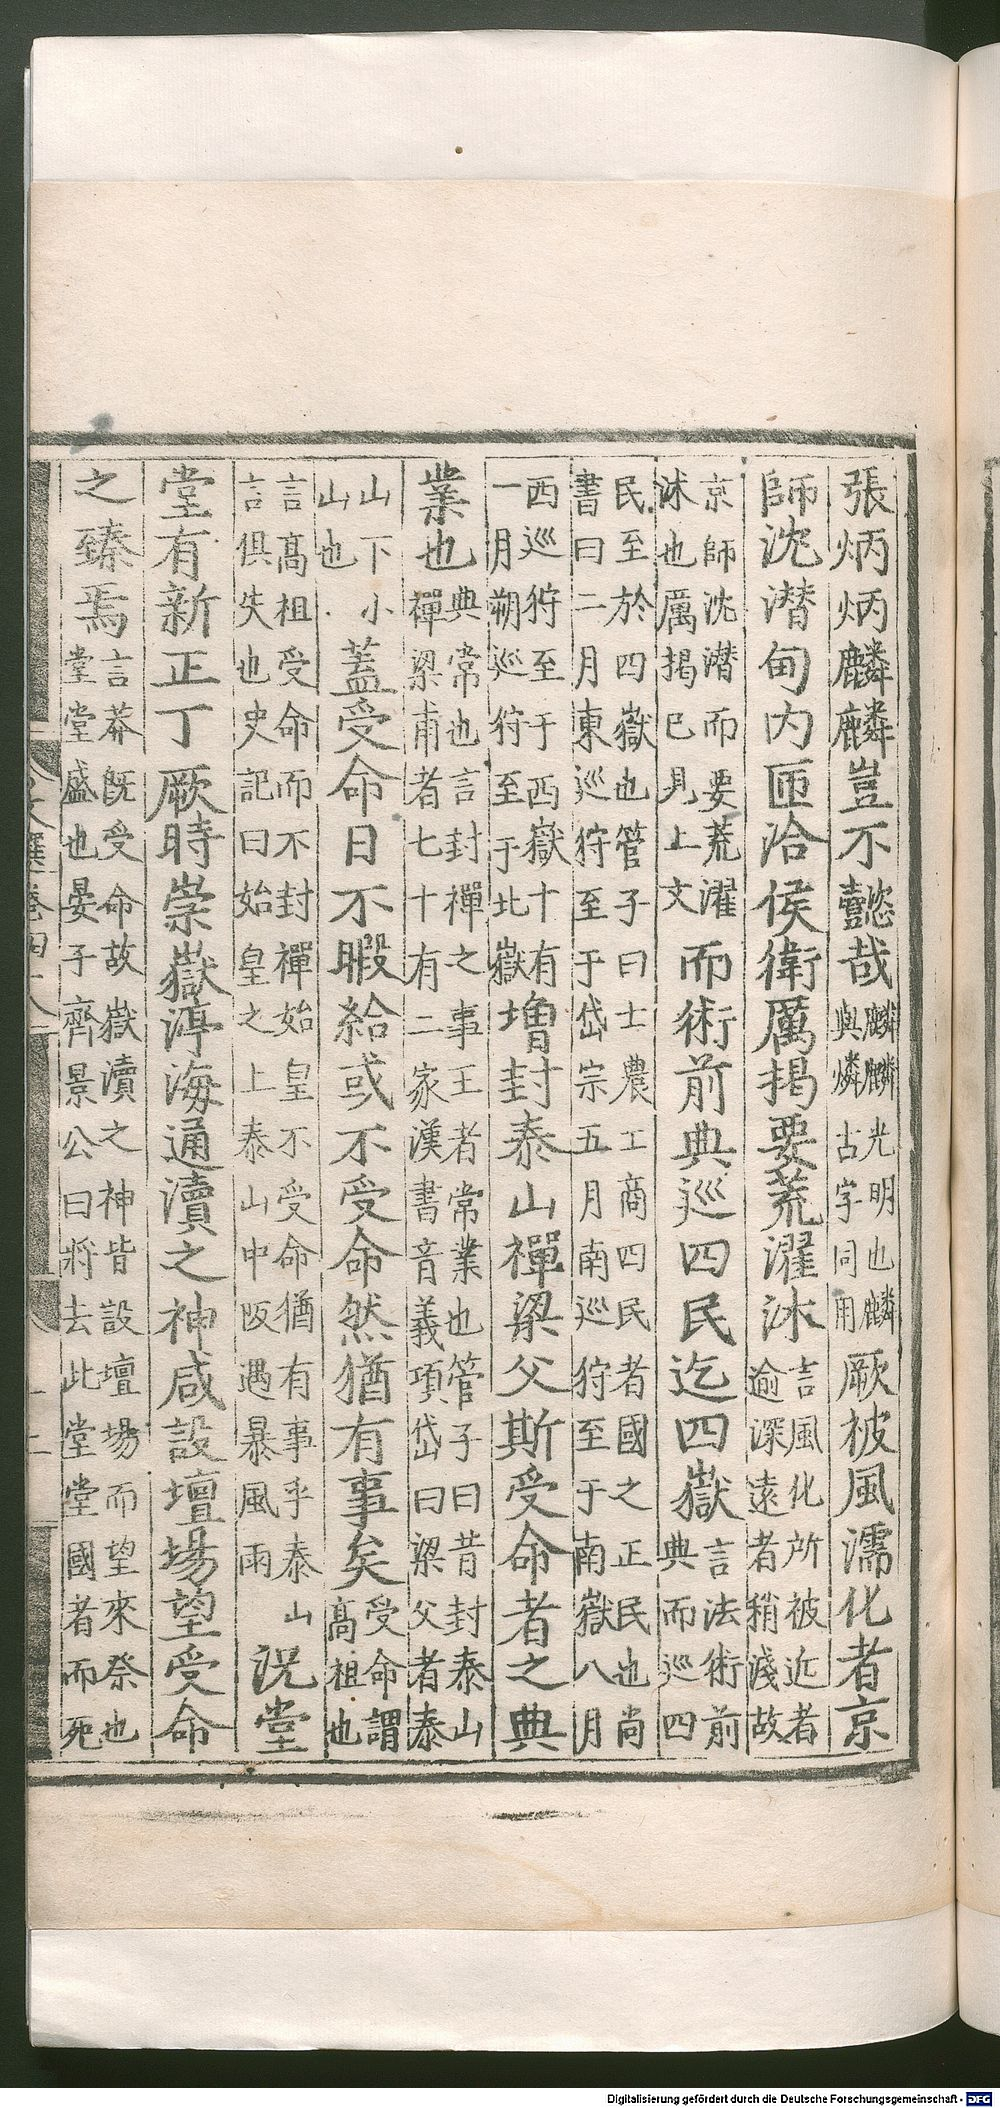 張炳炳麟麟豈不懿哉麟麟光明也麟與燐古字同用厥被風濡化者京
師沈潛甸内匝洽侯衛厲揭要荒濯沐言風化所被近者逾深遠者稍淺故
京師沈潛而要荒濯沐也厲揭已見上文而術前典巡四民迄四嶽言法術前典而巡四
民至於四嶽也管子曰士農工商四民者國之正民也尚書曰二月東巡狩至于岱宗五月南巡狩至于南嶽八月
西巡狩至于西嶽十有一月朔巡狩至于北嶽增封泰山禪梁父斯受命者之典
業也典常也言封禪之事王者常業也管子曰昔封泰山禪梁甫者七十有二家漢書音義項岱曰梁父者泰
山下小山也蓋受命日不暇給或不受命然猶有事矣受命謂高祖也
言高祖受命而不封禪始皇不受命猶有事乎泰山言俱失也史記曰始皇之上泰山中阪遇暴風雨況堂
堂有新正丁厥時崇嶽渟海通瀆之神咸設壇場望受命
之臻焉言莽旣受命故嶽瀆之神皆設壇場而望來祭也堂堂盛也晏子齊景公曰將去此堂堂國者而死
Digitalisierung gefördert durch die Deutsche Forschungsgemeinschaft - DFG